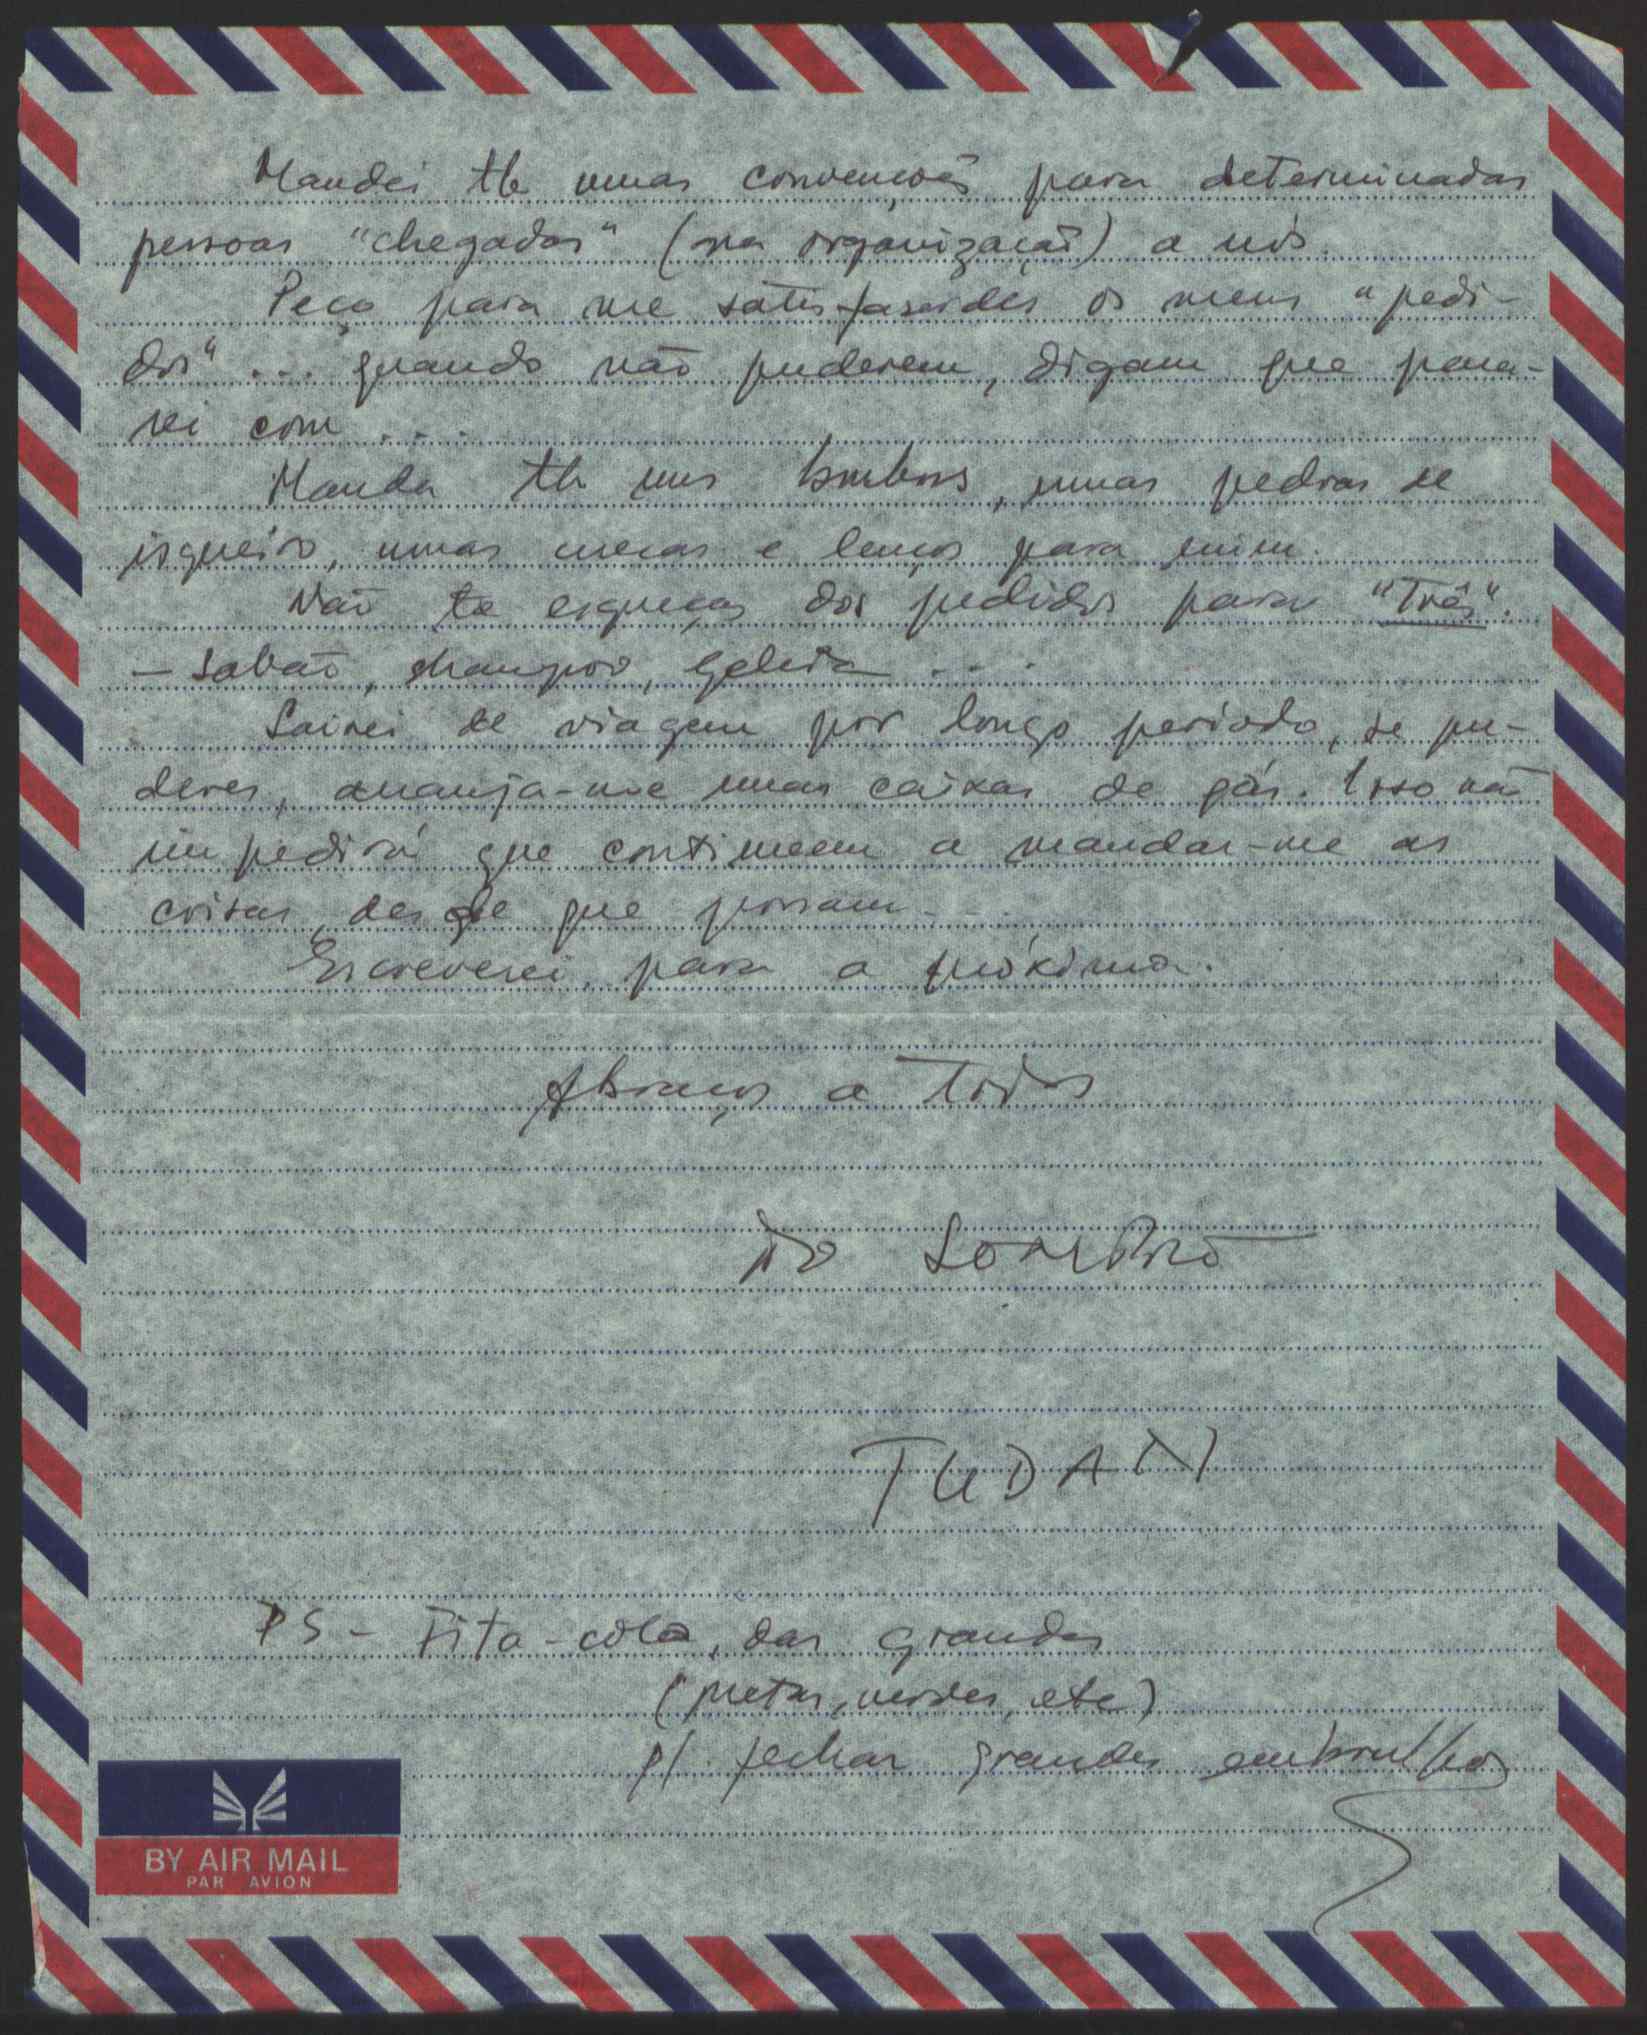 Mandei tb umas convenções para determinadas
pessoas "chegadas" (na organização) a nós.
Peço para me satisfazerdes os meus "pedi-
dos" ... quando não puderem, digam que para-
rei com ...
Manda tb uns bombons, umas pedras de
isqueiro, umas cuecas e lenços para mim.
Não te esqueças dos pedidos para "Três".
— Sabão, champoo, geleia ...
Sairei de viagem por longo período, se pu-
deres, arranja-me umas caixas de gás. Isso não
impedirá que continuem a mandar-me as
coisas, desde que possam...
Escreverei para a próxima.
Abraços a todos
Do
TUDAN
PS - Fita-cola, das grandes
(pretas, verdes, etc)
p/ fechar grandes embrulhos
BY AIR MAIL
PAR AVION